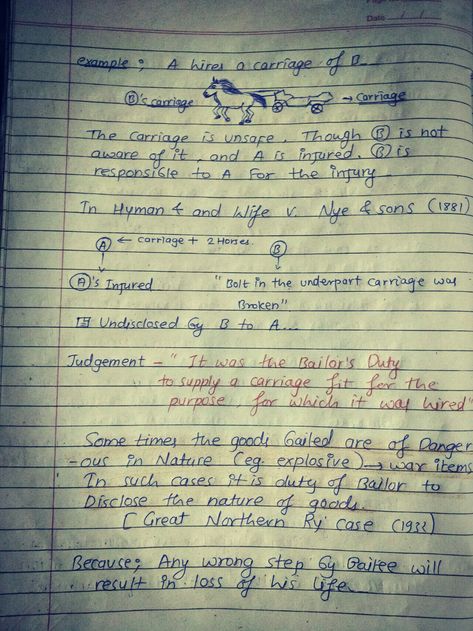 Page
Date
example; A hires a carriage of B
Ⓑ's carriage → carriage
The carriage is unsafe. Though Ⓑ is not
aware of it, and A is injured. Ⓑ is
responsible to A For the injury
In Hyman & and Wife v. Nye & sons (1881)
Ⓐ ← carriage + 2 Horses. Ⓑ
Ⓐ's Injured "Bolt in the underpart carriage was
Broken"
Undisclosed by B to A...
Judgement - " It was the Bailor's Duty
to supply a carriage fit for the
purpose for which it was hired"
Some times the goods bailed are of Danger
-ous in Nature (eg. explosive) → war items
In such cases it is duty of Bailor to
Disclose the nature of goods.
[ Great Northern Rj case (1932)
Because; Any wrong step by Bailee will
result in loss of his life